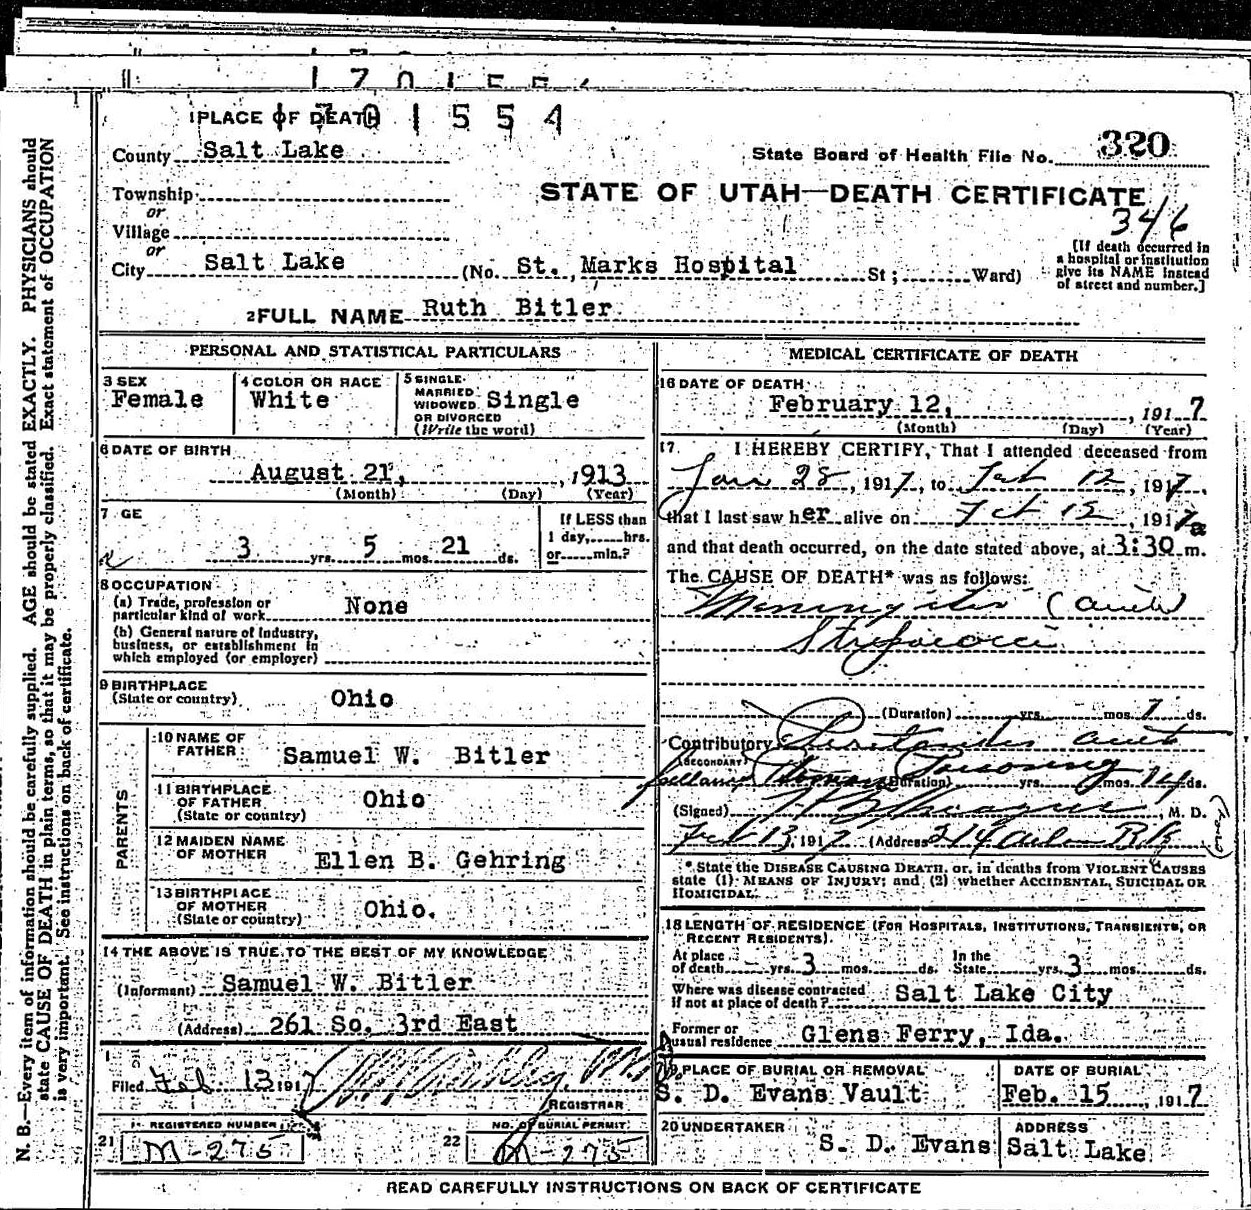 1701554
1 PLACE OF DEATH
1701554
County Salt Lake
State Board of Health File No. 320
Township
or
STATE OF UTAH—DEATH CERTIFICATE
346
Village
or
City Salt Lake (No. St. Marks Hospital St; Ward)
[If death occurred in
a hospital or institution
give its NAME instead
of street and number.]
2 FULL NAME Ruth Bitler
PERSONAL AND STATISTICAL PARTICULARS
3 SEX
Female
4 COLOR OR RACE
White
5 SINGLE
MARRIED
WIDOWED
OR DIVORCED
(Write the word)
Single
6 DATE OF BIRTH
August 21, , 1913
(Month) (Day) (Year)
7 GE
3 yrs. 5 mos. 21 ds.
If LESS than
1 day, hrs.
or min.?
8 OCCUPATION
(a) Trade, profession or
particular kind of work None
(b) General nature of Industry,
business, or establishment in
which employed (or employer)
9 BIRTHPLACE
(State or country) Ohio
PARENTS
10 NAME OF
FATHER Samuel W. Bitler
11 BIRTHPLACE
OF FATHER
(State or country) Ohio
12 MAIDEN NAME
OF MOTHER Ellen B. Gehring
13 BIRTHPLACE
OF MOTHER
(State or country) Ohio.
14 THE ABOVE IS TRUE TO THE BEST OF MY KNOWLEDGE
(Informant) Samuel W. Bitler
(Address) 261 So. 3rd East
Filed Feb. 13 1917
REGISTRAR
REGISTERED NUMBER
21 M-275
NO. OF BURIAL PERMIT
22 M-275
MEDICAL CERTIFICATE OF DEATH
16 DATE OF DEATH
February 12, , 1917
(Month) (Day) (Year)
17 I HEREBY CERTIFY, That I attended deceased from
Jan 28, 1917, to Feb 12, 1917,
that I last saw her alive on Feb 12, 1917
and that death occurred, on the date stated above, at 3:30 a m.
The CAUSE OF DEATH* was as follows:
Meningitis (acute)
Streptococci
(Duration) yrs. mos. 7 ds.
Contributory acute
(SECONDARY)
(Duration) yrs. mos. 14 ds.
(Signed) Sprague, M. D.
Feb 13, 1917 (Address 214
*State the DISEASE CAUSING DEATH, or, in deaths from VIOLENT CAUSES
state (1) MEANS OF INJURY; and (2) whether ACCIDENTAL, SUICIDAL OR
HOMICIDAL.
18 LENGTH OF RESIDENCE (FOR HOSPITALS, INSTITUTIONS, TRANSIENTS, OR
RECENT RESIDENTS).
At place
of death yrs. 3 mos. ds.
In the
State yrs. 3 mos. ds.
Where was disease contracted
if not at place of death? Salt Lake City
Former or
usual residence Glens Ferry, Ida.
19 PLACE OF BURIAL OR REMOVAL
S. D. Evans Vault
DATE OF BURIAL
Feb. 15 , 1917
20 UNDERTAKER
S. D. Evans
ADDRESS
Salt Lake
READ CAREFULLY INSTRUCTIONS ON BACK OF CERTIFICATE
N. B.—Every item of information should be carefully supplied. AGE should be stated EXACTLY. PHYSICIANS should
state CAUSE OF DEATH in plain terms, so that it may be properly classified. Exact statement of OCCUPATION
is very important. See instructions on back of certificate.